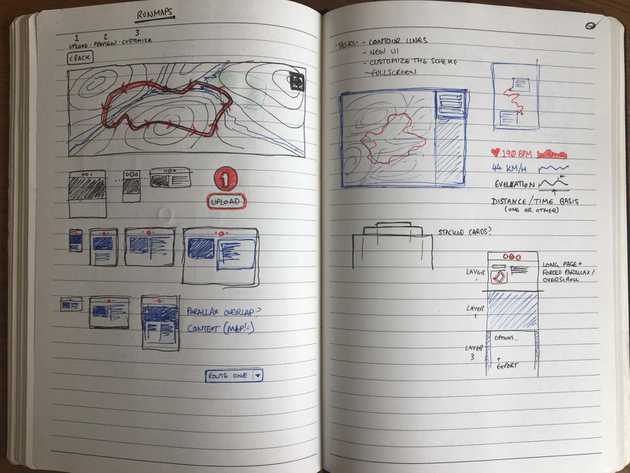 RUNMAPS
1 2 3
UPLOAD · PREVIEW · CUSTOMIZE
< BACK
1
UPLOAD
PARALLAX OVERLAP?
CONTEXT (MAP!)
ROUTE ONE
- CONTOUR LINES
- NEW UI
- CUSTOMIZE THE SCHEME
- FULLSCREEN
190 BPM
44 KM/H
ELEVATION
DISTANCE/TIME BASIS
(ONE OR OTHER)
STACKED CARDS?
LONG PAGE +
FORCED PARALLAX/
OVERSCROLL
LAYER
LAYER
LAYER
3
OPTIONS..
+
EXPORT